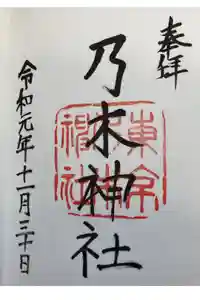 奉拝
東京
神社
乃木神社
令和元年十一月三十日